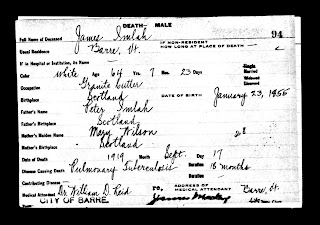 DEATH — MALE
Full Name of Deceased James Imlah 94
Usual Residence Barre, Vt. IF NON-RESIDENT HOW LONG AT PLACE OF DEATH
If in Hospital or Institution, its Name
Color White Age 64 Yrs. 7 Mos. 23 Days Single Married Widowed Divorced
Occupation Granite Cutter
Birthplace Scotland DATE OF BIRTH January 23, 1855
Father's Name Peter Imlah
Father's Birthplace Scotland
Mother's Maiden Name Mary Wilson
Mother's Birthplace Scotland
Date of Death 1919 Month Sept. Day 17
Disease Causing Death Pulmonary Tuberculosis Duration 18 months
Contributing Disease Duration
Medical Attendant Dr. William D. Reid P.O. ADDRESS OF MEDICAL ATTENDANT Barre, Vt.
CITY OF BARRE. James